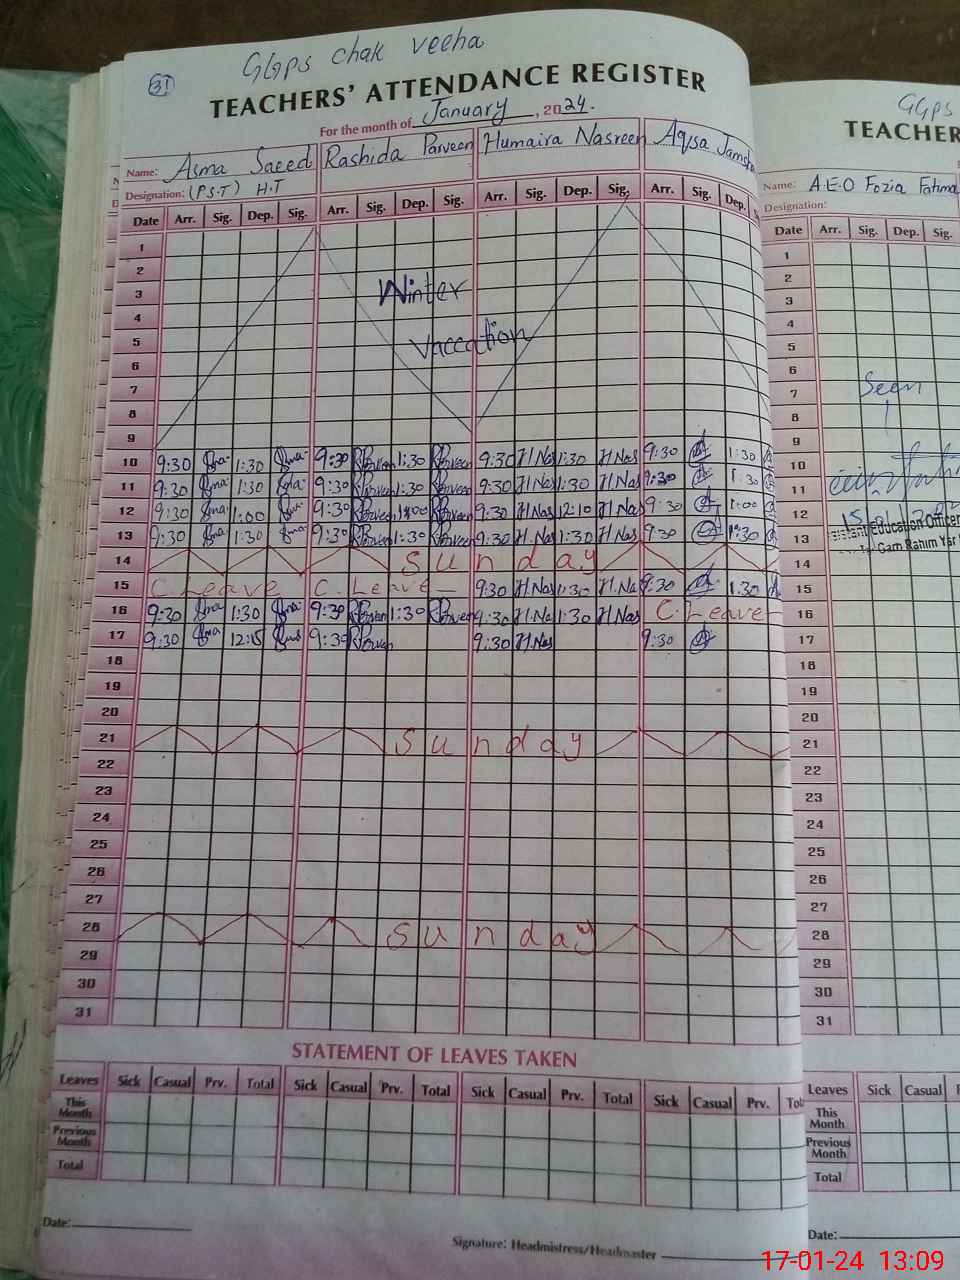 31
GGPS chak veeha
TEACHERS' ATTENDANCE REGISTER
For the month of January, 2024.
Name: Asma Saeed Rashida Parveen Humaira Nasreen Aqsa
Designation: (P.S.T) H.T
Date Arr. Sig. Dep. Sig. Arr. Sig. Dep. Sig. Arr. Sig. Dep. Sig. Arr. Sig. Dep.
1
2
3 Winter
4
5 Vaccation
6
7
8
9
10 9:30 1:30 9:30 RParveen 1:30 RParveen 9:30 H.Nas 1:30 H.Nas 9:30 1:30
11 9:30 1:30 9:30 RParveen 1:30 RParveen 9:30 H.Nas 1:30 H.Nas 9:30 1:30
12 9:30 1:00 9:30 RParveen 1:00 RParveen 9:30 H.Nas 12:10 H.Nas 9:30 1:00
13 9:30 1:30 9:30 RParveen 1:30 RParveen 9:30 H.Nas 1:30 H.Nas 9:30 1:30
14 Sunday
15 C.Leave C.Leave 9:30 H.Nas 1:30 H.Nas 9:30 1:30
16 9:30 1:30 9:30 RParveen 1:30 RParveen 9:30 H.Nas 1:30 H.Nas C.Leave
17 9:30 12:15 9:30 RParveen 9:30 H.Nas 9:30
18
19
20
21 Sunday
22
23
24
25
26
27
28 Sunday
29
30
31
STATEMENT OF LEAVES TAKEN
Leaves Sick Casual Prv. Total Sick Casual Prv. Total Sick Casual Prv. Total Sick Casual Prv.
This Month
Previous Month
Total
Date:
Signature: Headmistress/Headmaster
GGPS
TEACHER
Name: A.E.O Fozia Fatima
Designation:
Date Arr. Sig. Dep. Sig.
1
2
3
4
5
6
7 Seen
8
9
10
11
12
Education Officer
13
14
15
16
17
18
19
20
21
22
23
24
25
26
27
28
29
30
31
Leaves Sick Casual
This Month
Previous Month
Total
Date:
17-01-24 13:09